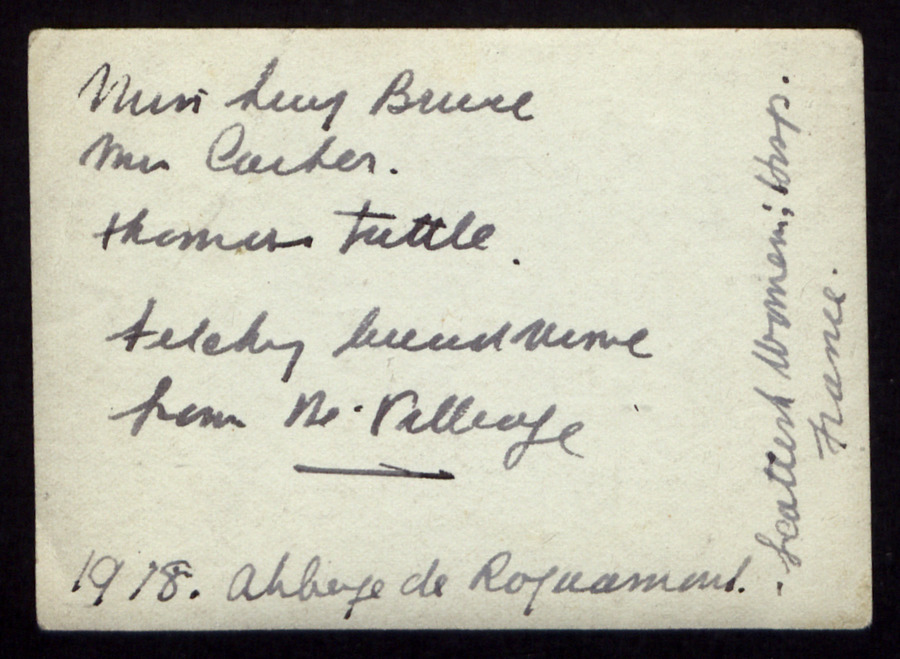 Miss Lucy Bruce
Mrs Carter.
Thomas Tuttle.
fetching bread
from the Village
1918. Abbeye de Royaumont.
Scottish Women's Hosp.
France.